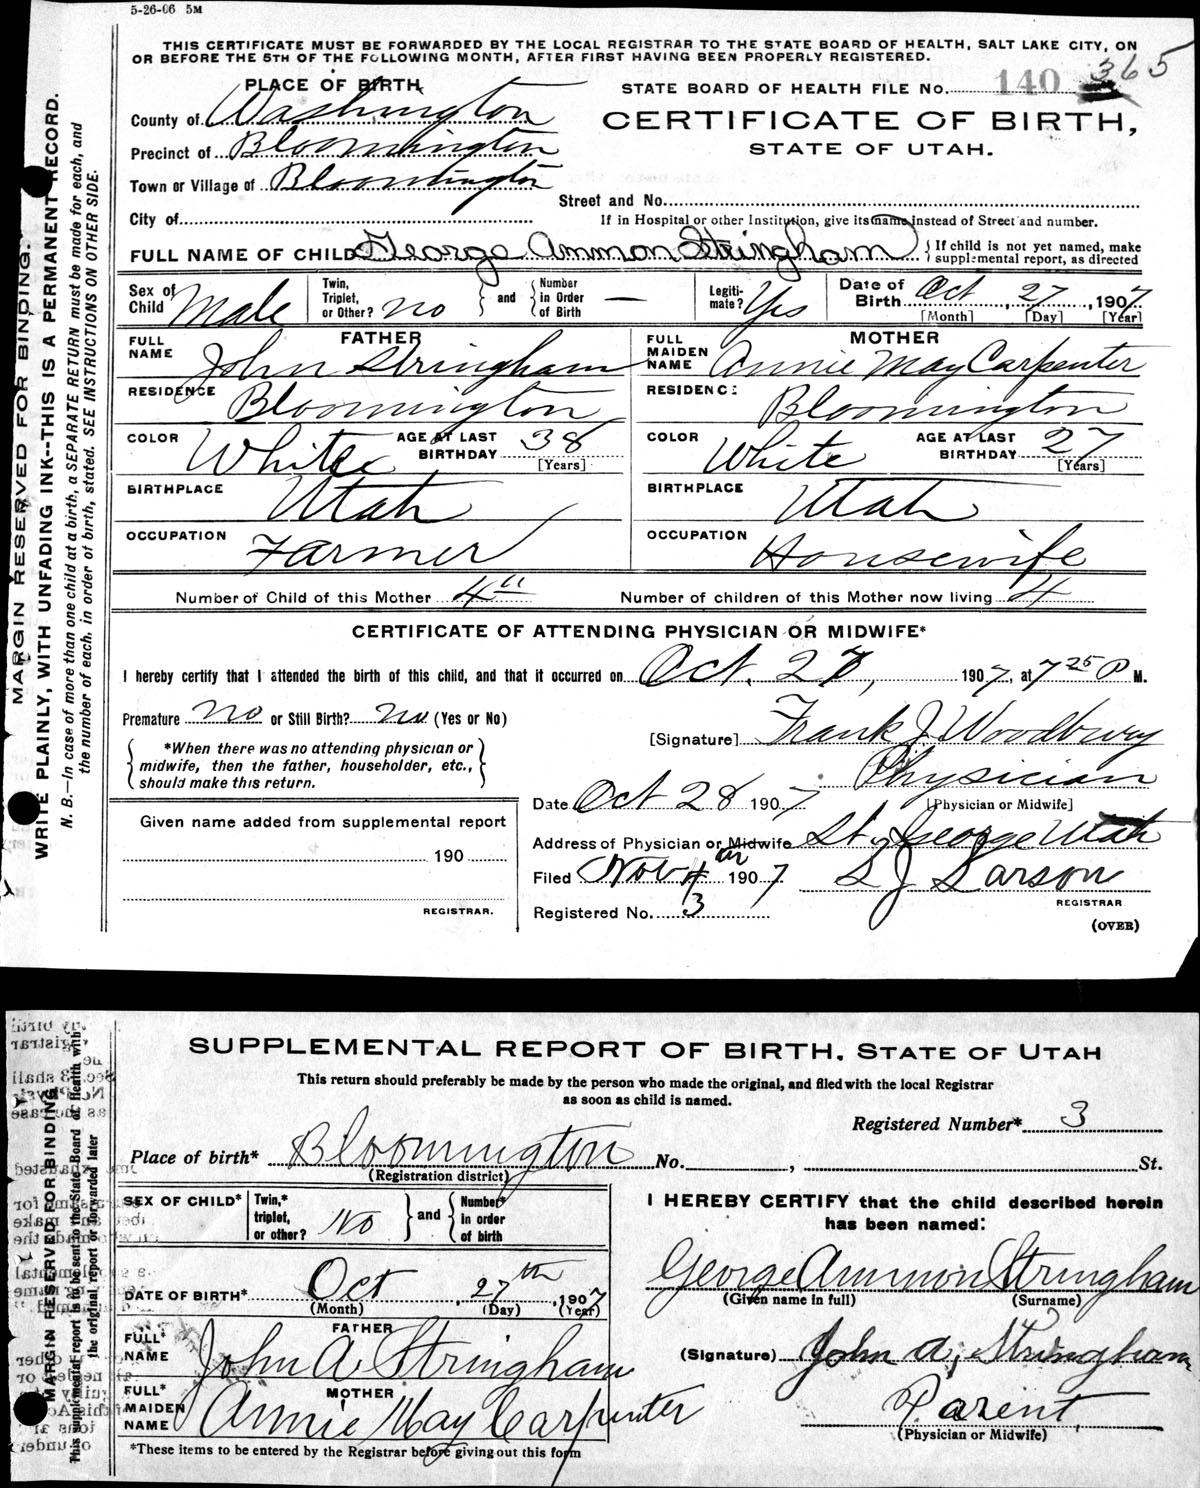 5-26-06 5M
THIS CERTIFICATE MUST BE FORWARDED BY THE LOCAL REGISTRAR TO THE STATE BOARD OF HEALTH, SALT LAKE CITY, ON
OR BEFORE THE 5TH OF THE FOLLOWING MONTH, AFTER FIRST HAVING BEEN PROPERLY REGISTERED.
PLACE OF BIRTH
STATE BOARD OF HEALTH FILE No. 140 365
County of Washington
CERTIFICATE OF BIRTH,
STATE OF UTAH.
Precinct of Bloomington
Town or Village of Bloomington
Street and No.
City of
If in Hospital or other Institution, give its name instead of Street and number.
FULL NAME OF CHILD George Ammon Stringham { If child is not yet named, make supplemental report, as directed
Sex of Child Male Twin, Triplet, or Other? no } and { Number in Order of Birth — Legiti-mate? Yes Date of Birth Oct, 27, 1907
[Month] [Day] [Year]
FATHER
FULL NAME John Stringham
RESIDENCE Bloomington
COLOR White AGE AT LAST BIRTHDAY 38 [Years]
BIRTHPLACE Utah
OCCUPATION Farmer
MOTHER
FULL MAIDEN NAME Annie May Carpenter
RESIDENCE Bloomington
COLOR White AGE AT LAST BIRTHDAY 27 [Years]
BIRTHPLACE Utah
OCCUPATION Housewife
Number of Child of this Mother 4" Number of children of this Mother now living 4
CERTIFICATE OF ATTENDING PHYSICIAN OR MIDWIFE*
I hereby certify that I attended the birth of this child, and that it occurred on Oct. 27, 1907, at 7 25 P M.
Premature no or Still Birth? no (Yes or No)
[Signature] Frank J Woodbury
Physician
[Physician or Midwife]
{ *When there was no attending physician or
midwife, then the father, householder, etc.,
should make this return. }
Date Oct 28 1907
Address of Physician or Midwife St. George Utah
Filed Nov 4 th 1907 S J Larson
REGISTRAR
Registered No. 3
(OVER)
Given name added from supplemental report
190
REGISTRAR.
MARGIN RESERVED FOR BINDING.
WRITE PLAINLY, WITH UNFADING INK--THIS IS A PERMANENT RECORD.
N. B.—In case of more than one child at a birth, a SEPARATE RETURN must be made for each, and
the number of each, in order of birth, stated. SEE INSTRUCTIONS ON OTHER SIDE.
SUPPLEMENTAL REPORT OF BIRTH, STATE OF UTAH
This return should preferably be made by the person who made the original, and filed with the local Registrar
as soon as child is named.
Registered Number* 3
Place of birth* Bloomington No. , St.
(Registration district)
SEX OF CHILD* Twin,* triplet, or other? No } and { Number* in order of birth
DATE OF BIRTH* Oct, 27th, 1907
(Month) (Day) (Year)
FATHER
FULL* NAME John A Stringham
MOTHER
FULL* MAIDEN NAME Annie May Carpenter
*These items to be entered by the Registrar before giving out this form
I HEREBY CERTIFY that the child described herein
has been named:
George Ammon Stringham
(Given name in full) (Surname)
(Signature) John A. Stringham
Parent
(Physician or Midwife)
MARGIN RESERVED FOR BINDING
This supplemental report is to be sent to the State Board of Health with
the original report or forwarded later